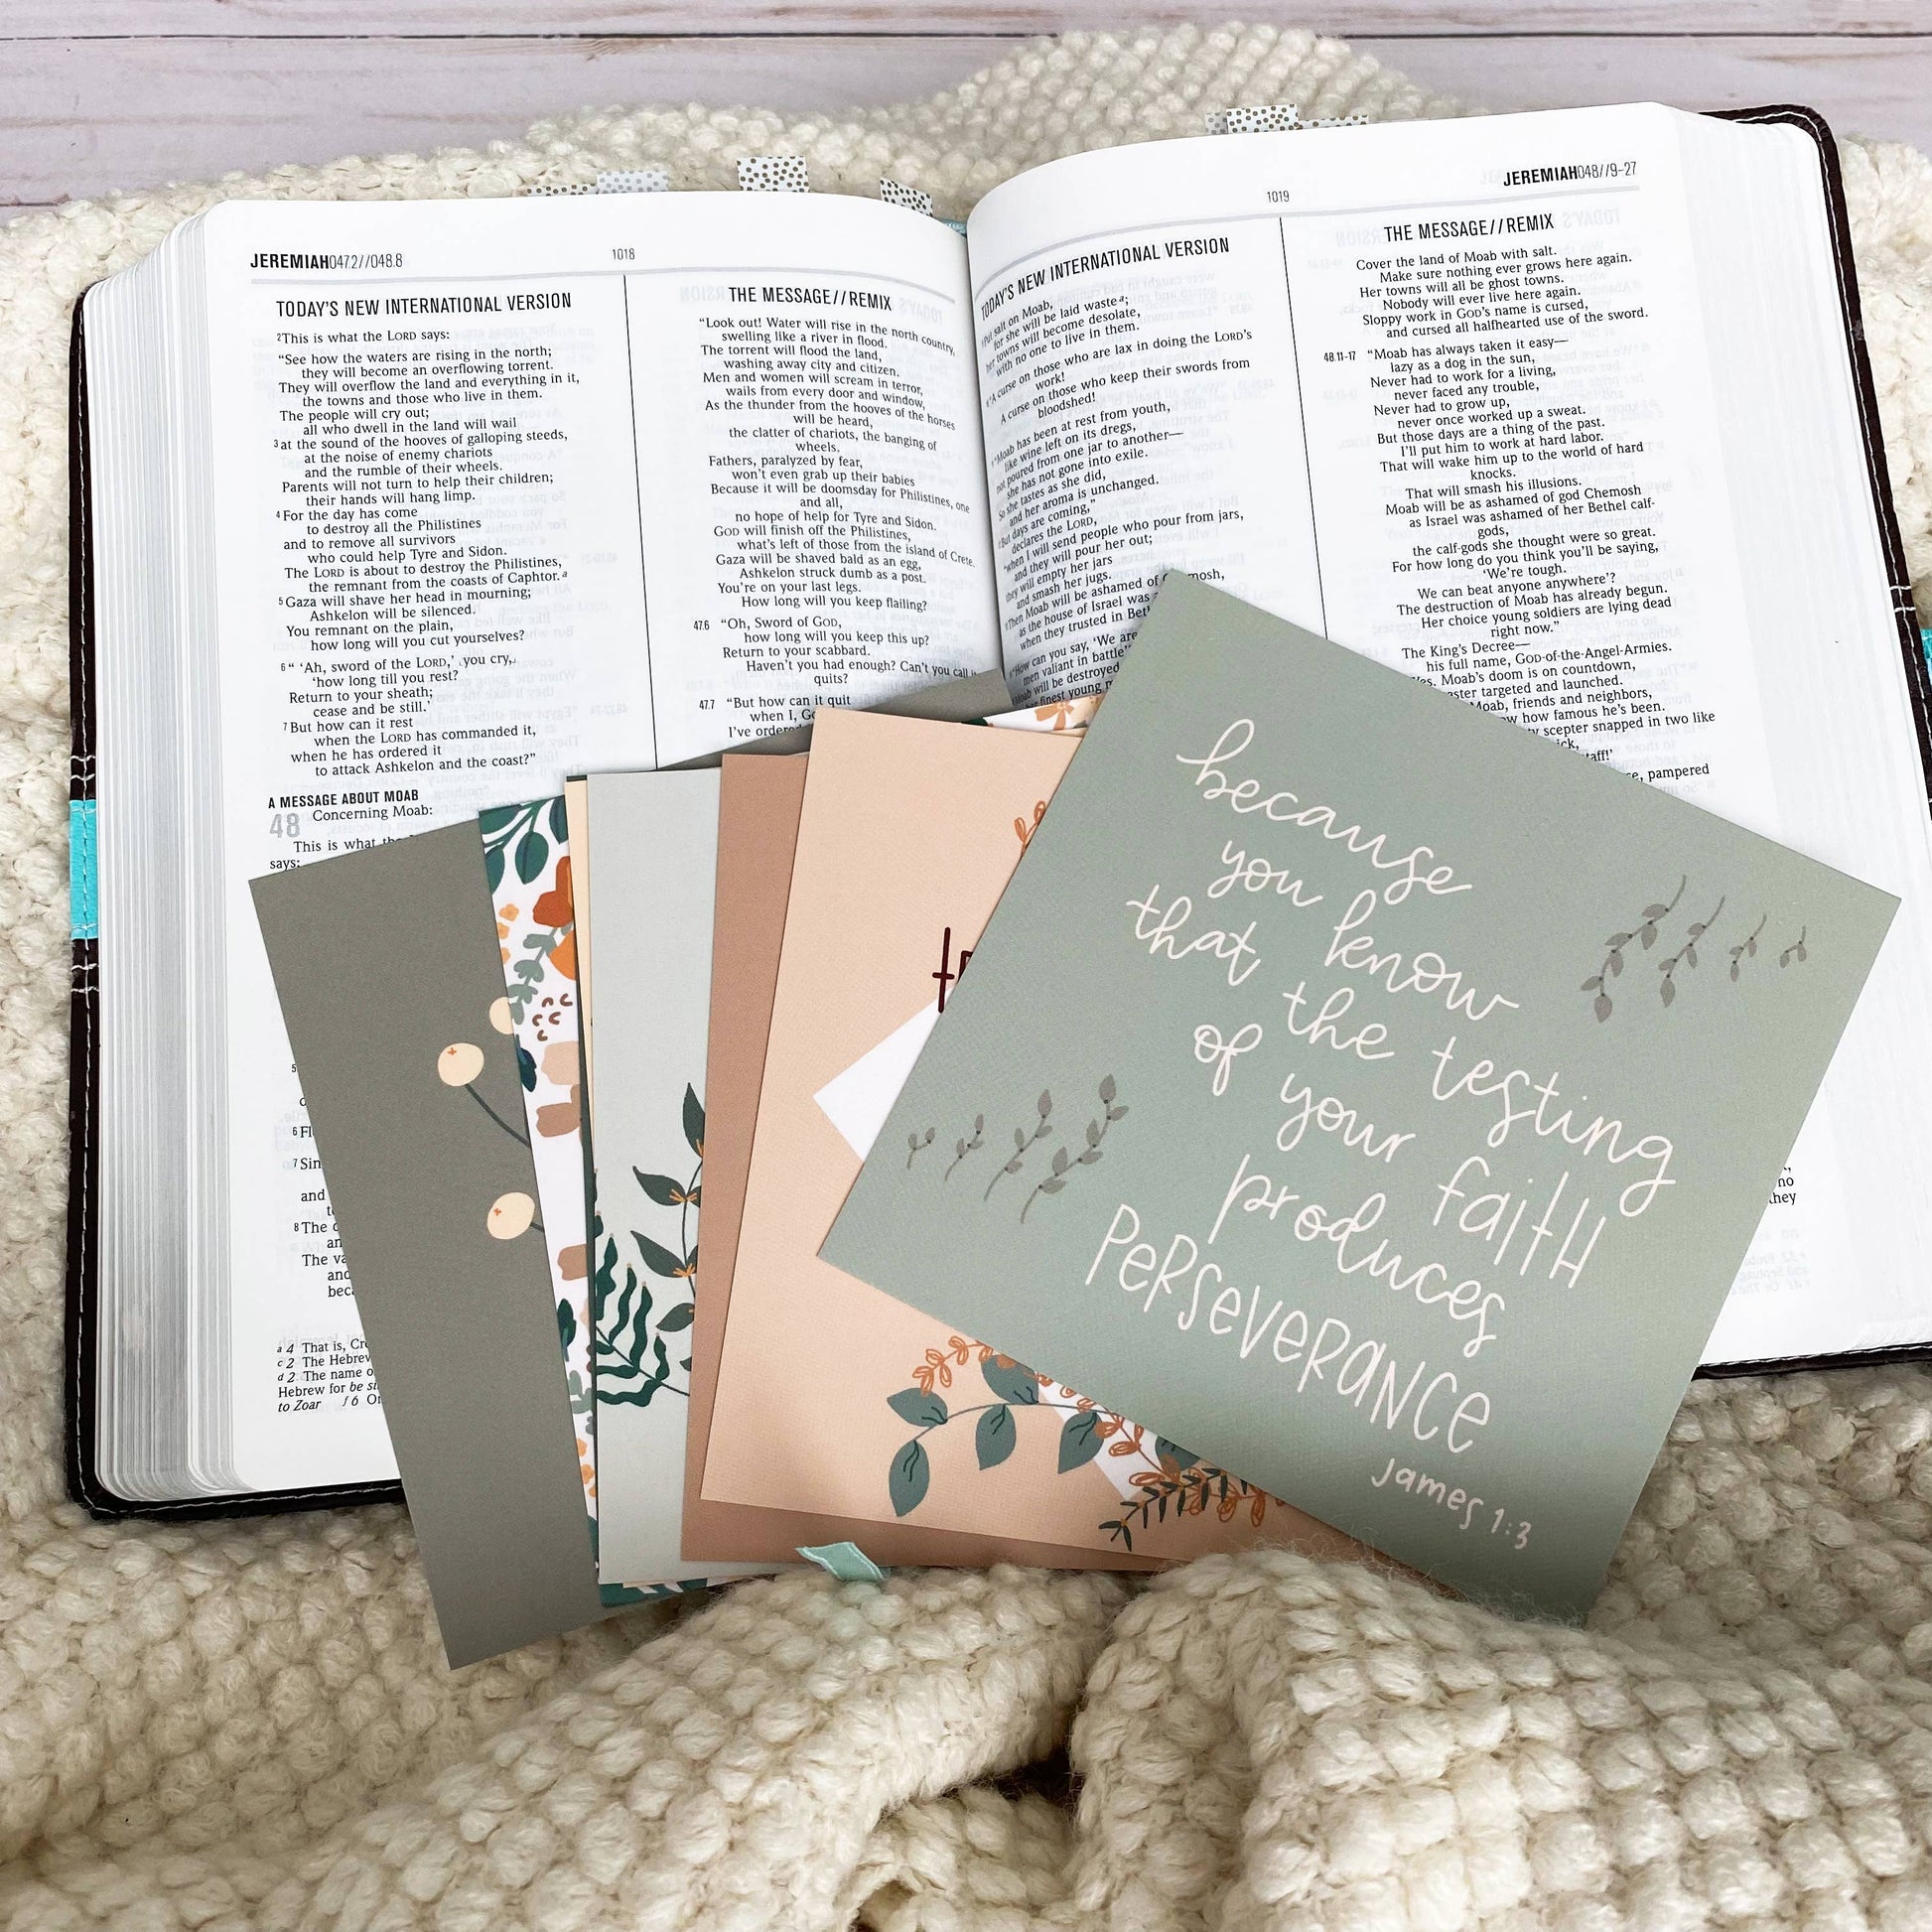 JEREMIAH047.2//048.8
1018
TODAY'S NEW INTERNATIONAL VERSION
2This is what the LORD says:
“See how the waters are rising in the north;
they will become an overflowing torrent.
They will overflow the land and everything in it,
the towns and those who live in them.
The people will cry out;
all who dwell in the land will wail
3at the sound of the hooves of galloping steeds,
at the noise of enemy chariots
and the rumble of their wheels.
Parents will not turn to help their children;
their hands will hang limp.
4For the day has come
to destroy all the Philistines
and to remove all survivors
who could help Tyre and Sidon.
The LORD is about to destroy the Philistines,
the remnant from the coasts of Caphtor.a
5Gaza will shave her head in mourning;
Ashkelon will be silenced.
You remnant on the plain,
how long will you cut yourselves?
6“ ‘Ah, sword of the LORD,’ you cry,
‘how long till you rest?
Return to your sheath;
cease and be still.’
7But how can it rest
when the LORD has commanded it,
when he has ordered it
to attack Ashkelon and the coast?”
A MESSAGE ABOUT MOAB
48 Concerning Moab:
This is what
says:
5
6
7Sin
and
8The
an
The
and
a 4 That is,
c 2 The Hebrew
d 2 The name
Hebrew for be
to Zoar f 6
THE MESSAGE//REMIX
“Look out! Water will rise in the north country,
swelling like a river in flood.
The torrent will flood the land,
washing away city and citizen.
Men and women will scream in terror,
wails from every door and window,
As the thunder from the hooves of the horses
will be heard,
the clatter of chariots, the banging of
wheels.
Fathers, paralyzed by fear,
won't even grab up their babies
Because it will be doomsday for Philistines, one
and all,
no hope of help for Tyre and Sidon.
GOD will finish off the Philistines,
what's left of those from the island of Crete.
Gaza will be shaved bald as an egg,
Ashkelon struck dumb as a post.
You're on your last legs.
How long will you keep flailing?
47.6 “Oh, Sword of GOD,
how long will you keep this up?
Return to your scabbard.
Haven't you had enough? Can't you call it
quits?
47.7 “But how can it quit
when I,
I've
1019
JEREMIAH048//9-27
TODAY'S NEW INTERNATIONAL VERSION
salt on Moab,
for she will be laid wastea;
her towns will become desolate,
with no one to live in them.
curse on those who are lax in doing the LORD's
work!
A curse on those who keep their swords from
bloodshed!
“Moab has been at rest from youth,
like wine left on its dregs,
not poured from one jar to another—
she has not gone into exile.
So she tastes as she did,
and her aroma is unchanged.
days are coming,”
declares the LORD,
“when I will send people who pour from jars,
and they will pour her out;
they will empty her jars
and smash her jugs.
Then Moab will be ashamed of
as the house of Israel was
when they trusted in
“How can you say, ‘We are
men valiant in
Moab will be destroyed
finest young
THE MESSAGE//REMIX
Cover the land of Moab with salt.
Make sure nothing ever grows here again.
Her towns will all be ghost towns.
Nobody will ever live here again.
Sloppy work in GOD's name is cursed,
and cursed all halfhearted use of the sword.
48.11-17 “Moab has always taken it easy—
lazy as a dog in the sun,
Never had to work for a living,
never faced any trouble,
Never had to grow up,
never once worked up a sweat.
But those days are a thing of the past.
I'll put him to work at hard labor.
That will wake him up to the world of hard
knocks.
That will smash his illusions.
Moab will be as ashamed of god Chemosh
as Israel was ashamed of her Bethel calf-
gods,
the calf-gods she thought were so great.
For how long do you think you'll be saying,
‘We're tough.
We can beat anyone anywhere’?
The destruction of Moab has already begun.
Her choice young soldiers are lying dead
right now.”
The King's Decree—
his full name, GOD-of-the-Angel-Armies.
Moab's doom is on countdown,
targeted and launched.
Moab, friends and neighbors,
how famous he's been.
scepter snapped in two like
pampered
because
you know
that the testing
of your faith
produces
PERSEVERANCE
James 1:3